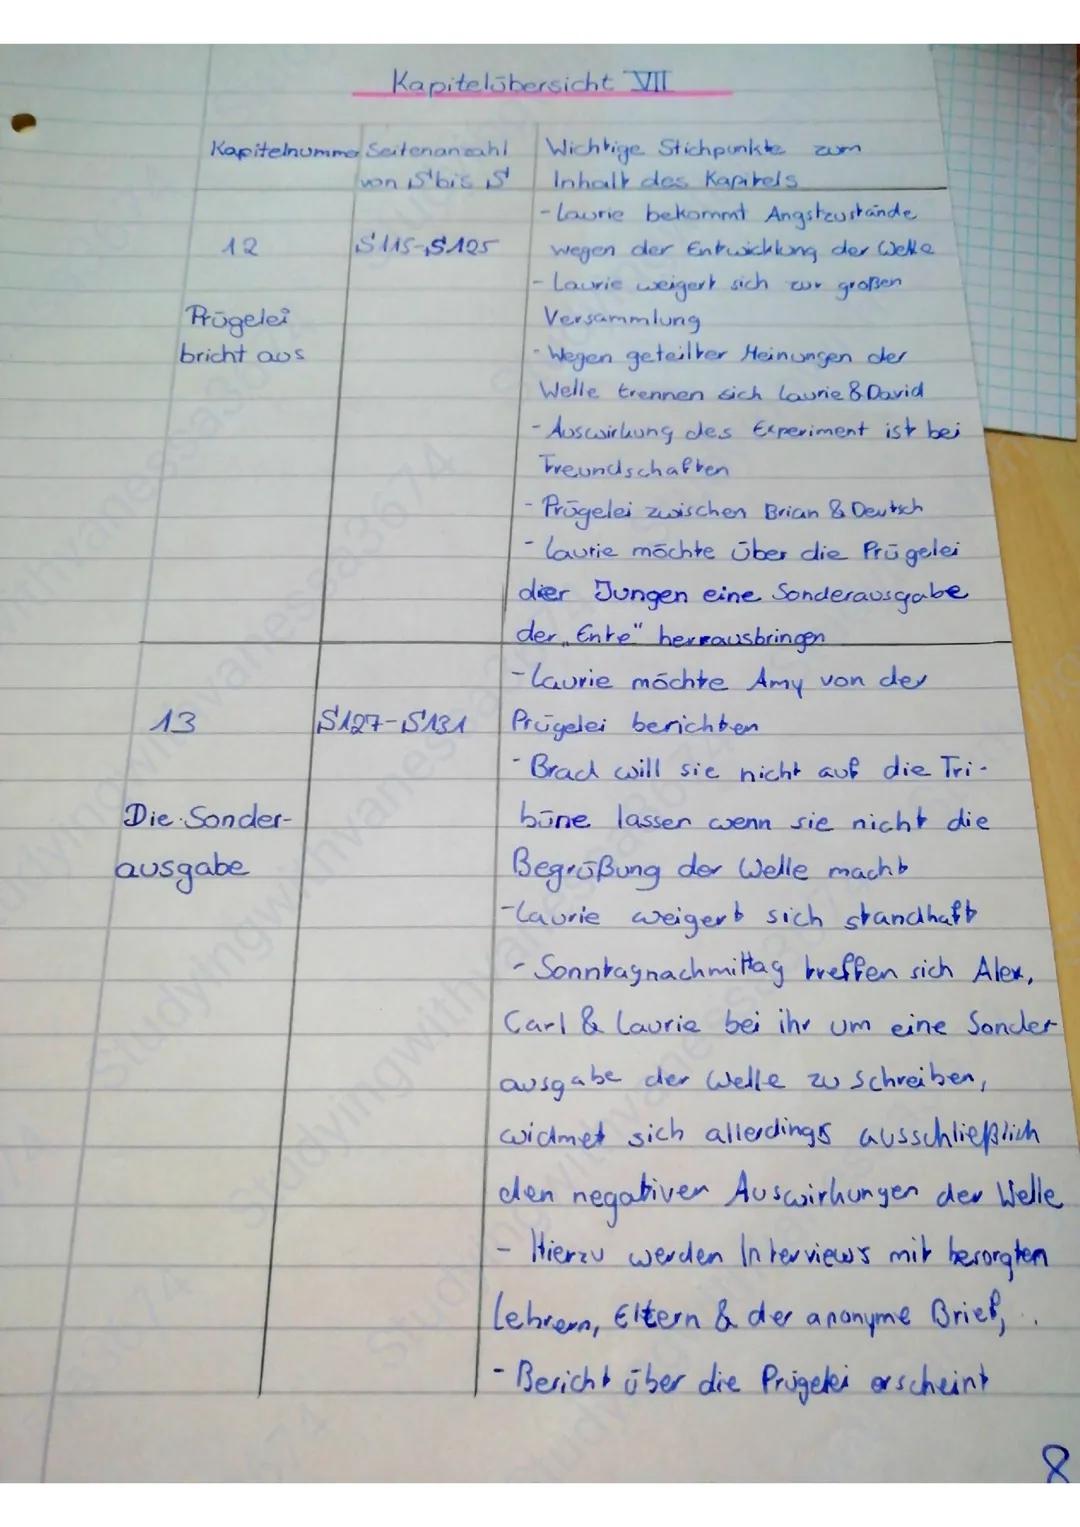 Kapitelübersicht VII
Kapitelnummer Seitenanzahl Wichtige Stichpunkte zum
von S bis S Inhalt des Kapitels
- Laurie bekommt Angstzustände
12 S115-S125 wegen der Entwicklung der Welle
- Laurie weigert sich zur großen
Prügelei Versammlung
bricht aus - Wegen geteilter Meinungen der
Welle trennen sich Laurie & David
- Auswirkung des Experiment ist bei
Freundschaften
- Prügelei zwischen Brian & Deutsch
- Laurie möchte über die Prügelei
dier Jungen eine Sonderausgabe
der „Ente" herrausbringen
- Laurie möchte Amy von der
13 S127-S131 Prügelei berichten
- Brad will sie nicht auf die Tri-
Die Sonder- büne lassen wenn sie nicht die
ausgabe Begrüßung der Welle macht
- Laurie weigert sich standhaft
- Sonntagnachmittag treffen sich Alex,
Carl & Laurie bei ihr um eine Sonder
ausgabe der Welle zu schreiben,
widmet sich allerdings ausschließlich
den negativen Auswirkungen der Welle
- Hierzu werden Interviews mit besorgten
Lehrern, Eltern & der anonyme Brief, ..
- Bericht über die Prügelei erscheint
8
Studyingwithvanessa3674